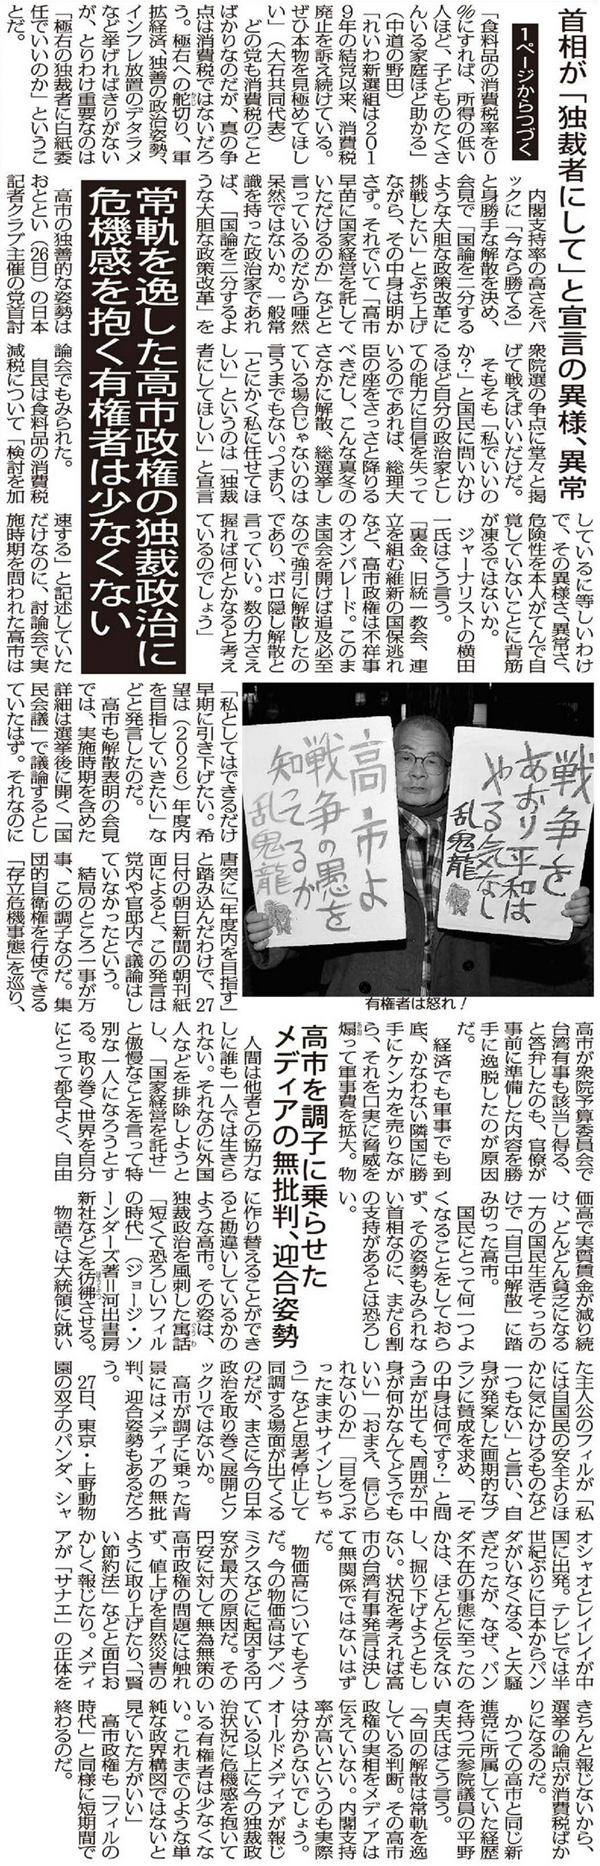 首相が「独裁者にして」と宣言の異様、異常
1ページからつづく
「食料品の消費税率を0
%にすれば、所得の低い
人ほど、子どものたくさ
んいる家庭ほど助かる」
(中道の野田)
「れいわ新選組は201
9年の結党以来、消費税
廃止を訴え続けている。
ぜひ本物を見極めてほし
い」(大石共同代表)
どの党も消費税のこと
ばかりなのだが、真の争
点は消費税ではないだろ
う。極右への舵切り、軍
拡経済、独善の政治姿勢、
インフレ放置のデタラメ
など挙げればきりがない
が、とりわけ重要なのは
「極右の独裁者に白紙委
任でいいのか」というこ
とだ。
内閣支持率の高さをバ
ックに「今なら勝てる」
と身勝手な解散を決め、
会見で「国論を二分する
ような大胆な政策改革に
挑戦したい」とぶち上げ
ながら、その中身は明か
さず。それでいて「高市
早苗に国家経営を託して
いただけるのか」などと
言っているのだから唖然
呆然ではないか。一般常
識を持った政治家であれ
ば、「国論を二分するよ
うな大胆な政策改革」を
衆院選の争点に堂々と掲
げて戦えばいいだけだ。
そもそも「私でいいの
か?」と国民に問いかけ
るほど自分の政治家とし
ての能力に自信を失って
いるのであれば、総理大
臣の座をさっさと降りる
べきだし、こんな真冬の
さなかに解散、総選挙し
ている場合じゃないのは
言うまでもない。つまり、
「とにかく私に任せてほ
しい」というのは「独裁
者にしてほしい」と宣言
しているに等しいわけ
で、その異様さ、異常さ、
危険性を本人がてんで自
覚していないことに背筋
が凍るではないか。
ジャーナリストの横田
一氏はこう言う。
「裏金、旧統一教会、連
立を組む維新の国保逃れ
など、高市政権は不祥事
のオンパレード。このま
ま国会を開けば追及必至
なので強引に解散したの
であり、ボロ隠し解散と
言っていい。数の力さえ
握れば何とかなると考え
ているのでしょう」
常軌を逸した高市政権の独裁政治に
危機感を抱く有権者は少なくない
高市の独善的な姿勢は
おととい(26日)の日本
記者クラブ主催の党首討
論会でもみられた。
自民は食料品の消費税
減税について「検討を加
速する」と記述していた
だけなのに、討論会で実
施時期を問われた高市は
「私としてはできるだけ
早期に引き下げたい。希
望は(2026)年度内
を目指していきたい」な
どと発言したのだ。
高市も解散表明の会見
では、実施時期を含めた
詳細は選挙後に開く「国
民会議」で議論するとし
ていたはず。それなのに
唐突に「年度内を目指す」
と踏み込んだわけで、27
日付の朝日新聞の朝刊紙
面によると、この発言は
党内や官邸内で議論はし
ていなかったという。
結局のところ一事が万
事、この調子なのだ。集
団的自衛権を行使できる
「存立危機事態」を巡り、
戦争を
あおり平和は
やる気なし
乱鬼龍
高市よ
戦争の愚を
知ってるか
乱鬼龍
有権者は怒れ!
高市が衆院予算委員会で
台湾有事も該当し得る、
と答弁したのも、官僚が
事前に準備した内容を勝
手に逸脱したのが原因
だ。
経済でも軍事でも到
底、かなわない隣国に勝
手にケンカを売りなが
ら、それを口実に脅威を
煽って軍事費を拡大。物
価高で実質賃金が減り続
け、どんどん貧乏になる
一方の国民生活そっちの
けで「自己中解散」に踏
み切った高市。
国民にとって何一つよ
くなることをしておら
ず、その姿勢もみられな
い首相なのに、まだ6割
の支持があるとは恐ろし
い。
高市を調子に乗らせた
メディアの無批判、迎合姿勢
人間は他者との協力な
しに誰も一人では生きら
れない。それなのに外国
人などを排除しようと
し、「国家経営を託せ」
と傲慢なことを言って特
別な一人になろうとす
る。取り巻く世界を自分
にとって都合よく、自由
に作り替えることができ
ると勘違いしているかの
ような高市。その姿は、
独裁政治を風刺した寓話
「短くて恐ろしいフィル
の時代」(ジョージ・ソ
ーンダーズ著=河出書房
新社など)を彷彿させる。
物語では大統領に就い
た主人公のフィルが「私
には自国民の安全よりほ
かに気にかけるものなど
一つもない」と言い、自
身が発案した画期的なプ
ランに賛成を求め、「そ
の中身は何です?」と問
う声が出ても、周囲が「中
身が何かなんてどうでも
いい」「おまえ、信じら
れないのか」「目をつぶ
ったままサインしちゃ
う」などと思考停止して
同調する場面が出てくる
のだが、まさに今の日本
政治を取り巻く展開とソ
ックリではないか。
高市が調子に乗った背
景にはメディアの無批
判、迎合姿勢もあるだろ
う。
27日、東京・上野動物
園の双子のパンダ、シャ
オシャオとレイレイが中
国に出発。テレビでは半
世紀ぶりに日本からパン
ダがいなくなる、と大騒
ぎだったが、なぜ、パン
ダ不在の事態に至ったの
かは、ほとんど伝えない
し、掘り下げようともし
ない。状況を考えれば高
市の台湾有事発言は決し
て無関係ではないはず
だ。
物価高についてもそう
だ。今の物価高はアベノ
ミクスなどに起因する円
安が最大の原因だ。その
円安に対して無為無策の
高市政権の問題には触れ
ず、値上げを自然災害の
ように取り上げたり、「賢
い節約法」などと面白お
かしく報じたり。メディ
アが「サナエ」の正体を
きちんと報じないから、
選挙の論点が消費税ばか
りになるのだ。
かつての高市と同じ新
進党に所属していた経歴
を持つ元参院議員の平野
貞夫氏はこう言う。
「今回の解散は常軌を逸
している判断。その高市
政権の実相をメディアは
伝えていない。内閣支持
率が高いというのも実際
は分からないでしょう。
オールドメディアが報じ
ている以上に今の独裁政
治状況に危機感を抱いて
いる有権者は少なくな
い。これまでのような単
純な政界構図ではないと
見ていた方がいい」
高市政権も「フィルの
時代」と同様に短期間で
終わるのだ。